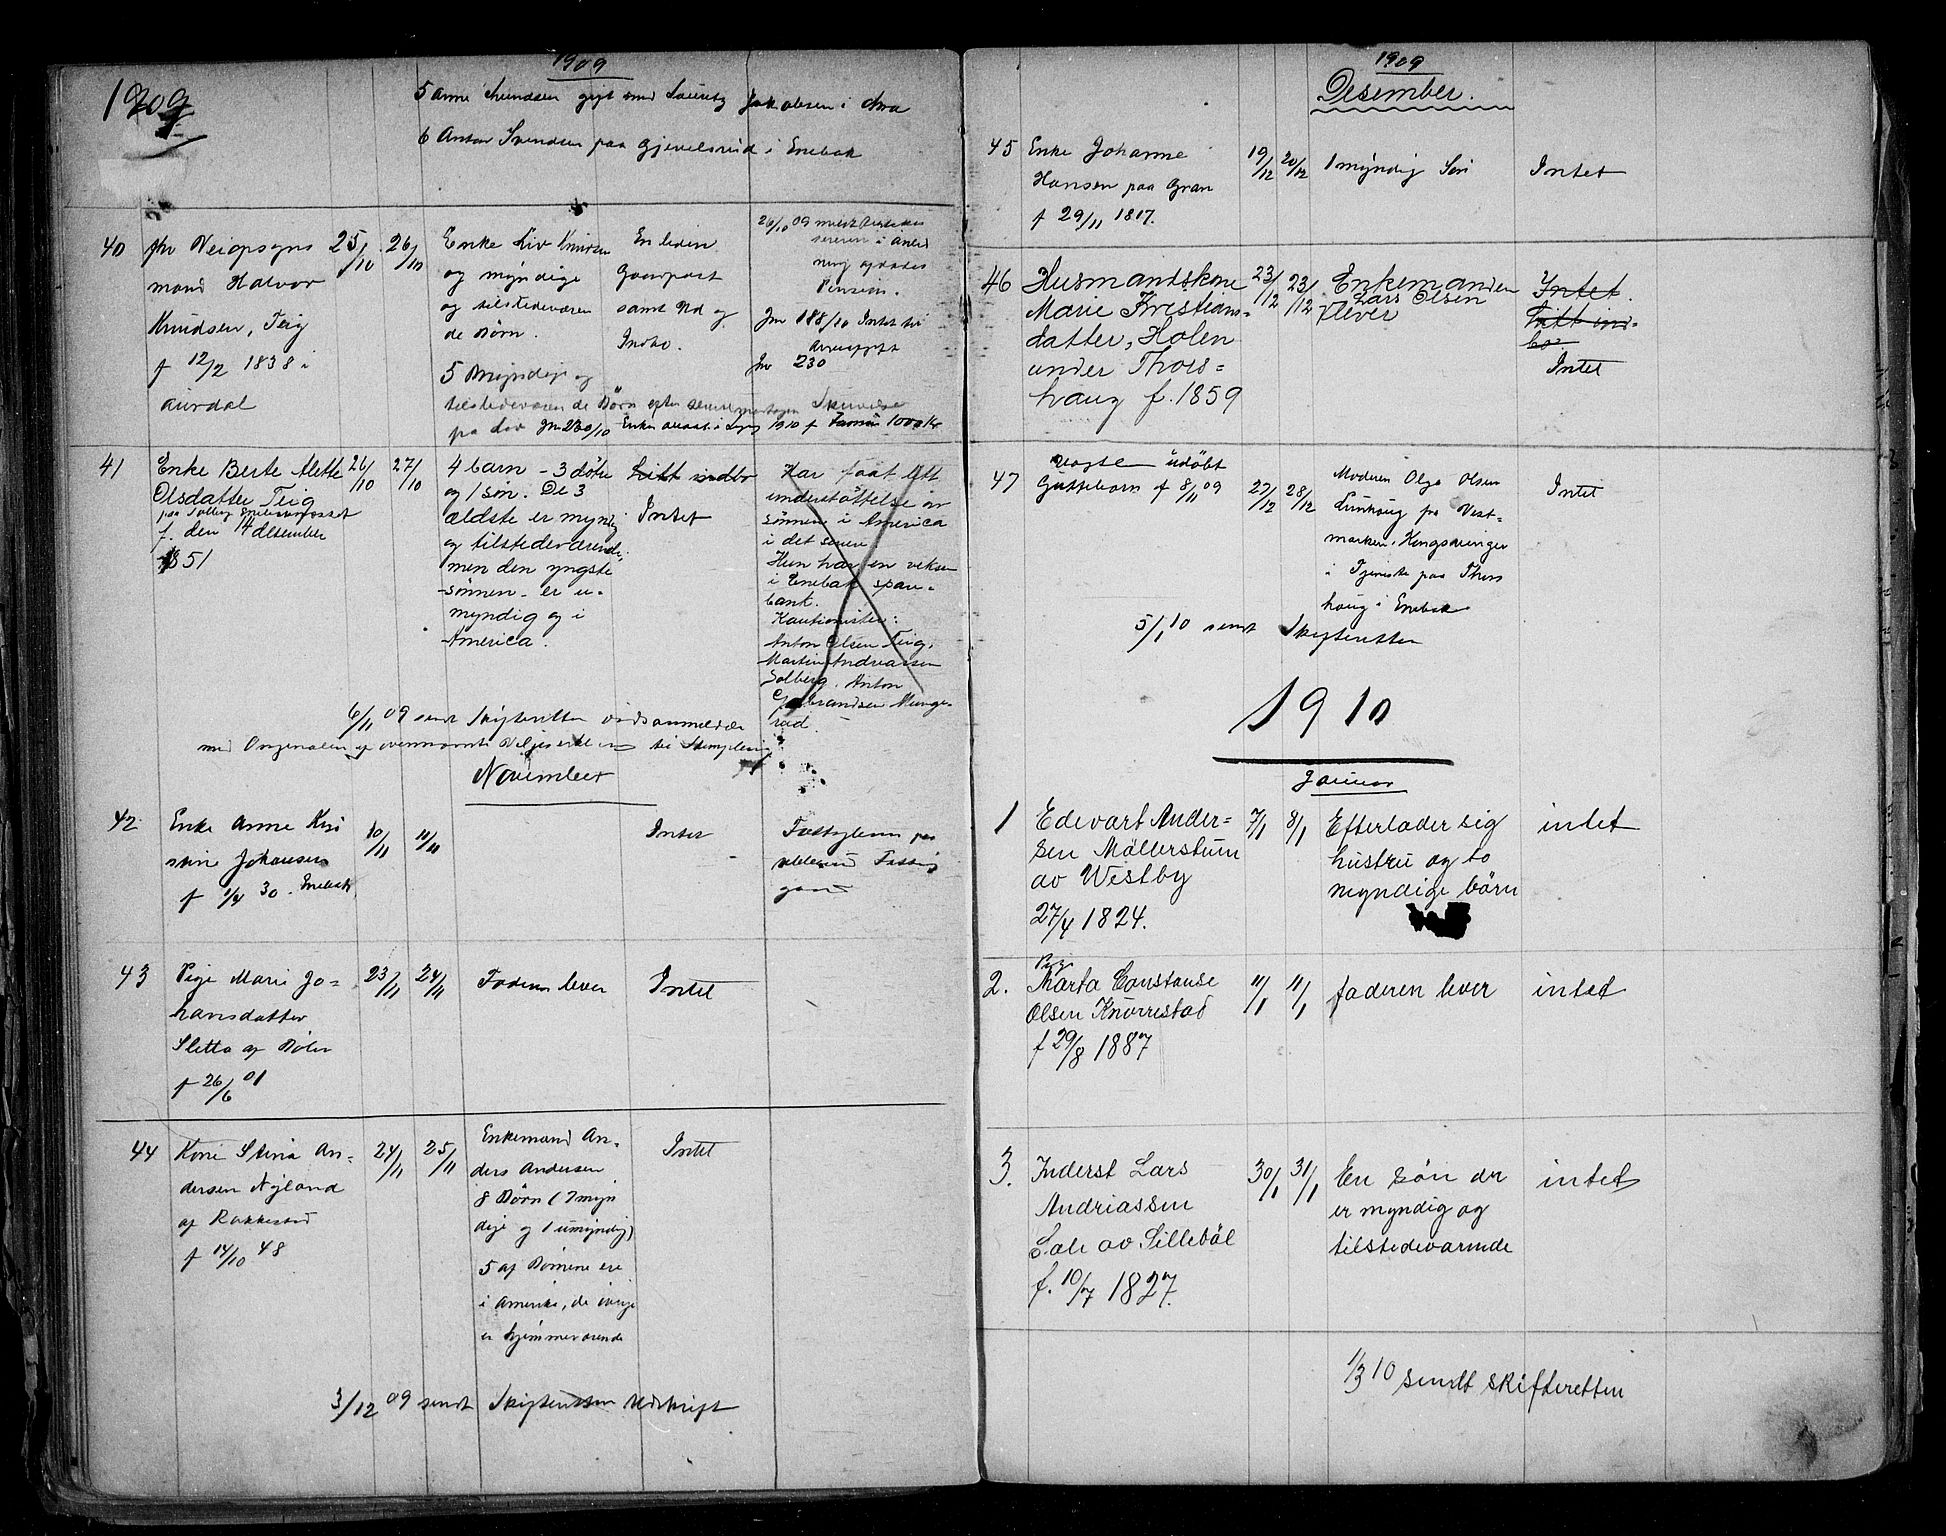 1909
1909
5 Anne Svendsen gift med Lauritz Jakobsen i
6 Anton Svendsen paa Gjevelsrud i Enebak
40
fhv Veiopsyns
mand Halvor
Knudsen, Teig
f 12/2 1838 i
Aurdal
25/10
26/10
Enke Liv Knudsen
og myndige
og tilstedeværen
de Børn.
5 Myndige og
tilstedeværende Børn efter
En liden
Gaardpart
samt Ud og
Indbo.
26/10 09
Pension.
Jnr 188/10 Intet til
Arveafgift
Jnr 230
41
Enke Berte Alette
Olsdatter Teig
f. den 14 desember
1851
26/10
27/10
4 barn - 3 døtre
og 1 søn. De 3
ældste er myndig
og tilstedeværende,
men den yngste
sønnen - er u-
myndig og i
America.
Litt indbo
Intet
Har faat litt
understøttelse av
sønnene i America
i det senere.
Hun har en veksel
i Enebak spare-
bank.
Kautionister:
Anton Olsen Teig,
Martin Andreassen
Solberg. Anton
Gulbrandsen Munge-
rud.
6/11 09 sendt Skifteretten
med Originalen af til Stempling
November
42
Enke Anne Kri
stine Johansen
f 1/4 30. Enebak
10/11
11/11
Intet
Fattiglem paa
Fattig
gaard
43
Pige Marie Jo-
hansdatter
Sletta af Bøler
f 26/6 01
23/11
24/11
Faderen lever
Intet
44
Kone Stina An-
dersen Nyland
af Rakkestad
f 14/10 48
24/11
25/11
Enkemand An-
ders Andersen
8 Børn (7 myn
dige og 1 umyndig)
5 af Børnene ere
i Amerika, de øvrige
er hjemmeværende
Intet
3/12 09 sendt Skifteretten Udskrift
1909
Desember.
45
Enke Johanne
Hansen paa Gran
f 29/11 1817.
19/12
20/12
1 myndig Søn
Intet
46
Husmandskone
Marie Kristians-
datter, Holen
under Thors-
haug f. 1859
23/12
23/12
Enkemanden
Lars Olsen
lever
Intet.
Litt ind-
bo
Intet
47
udøbt
Guttebarn f 8/11 09
27/12
28/12
Moderen Olga Olsen
Lunhaug fra Vest-
marken, Kongsvinger
i Tjeneste paa Thors
haug i Enebak
Intet
5/1 10 sendt Skifteretten
1910
Januar
1
Edevart Ander-
sen Møllerstuen
av Westby
27/4 1824.
7/1
8/1
Efterlader sig
hustru og to
myndige børn
intet
2.
Pige
Marta Constanse
Olsen Knurrestad
f 29/8 1887
11/1
11/1
faderen lever
intet
3.
Inderst Lars
Andriassen
av Sillebøl
f. 10/7 1827.
30/1
31/1
En søn der
er myndig og
tilstedeværende
intet
1/3 10 sendt skifteretten